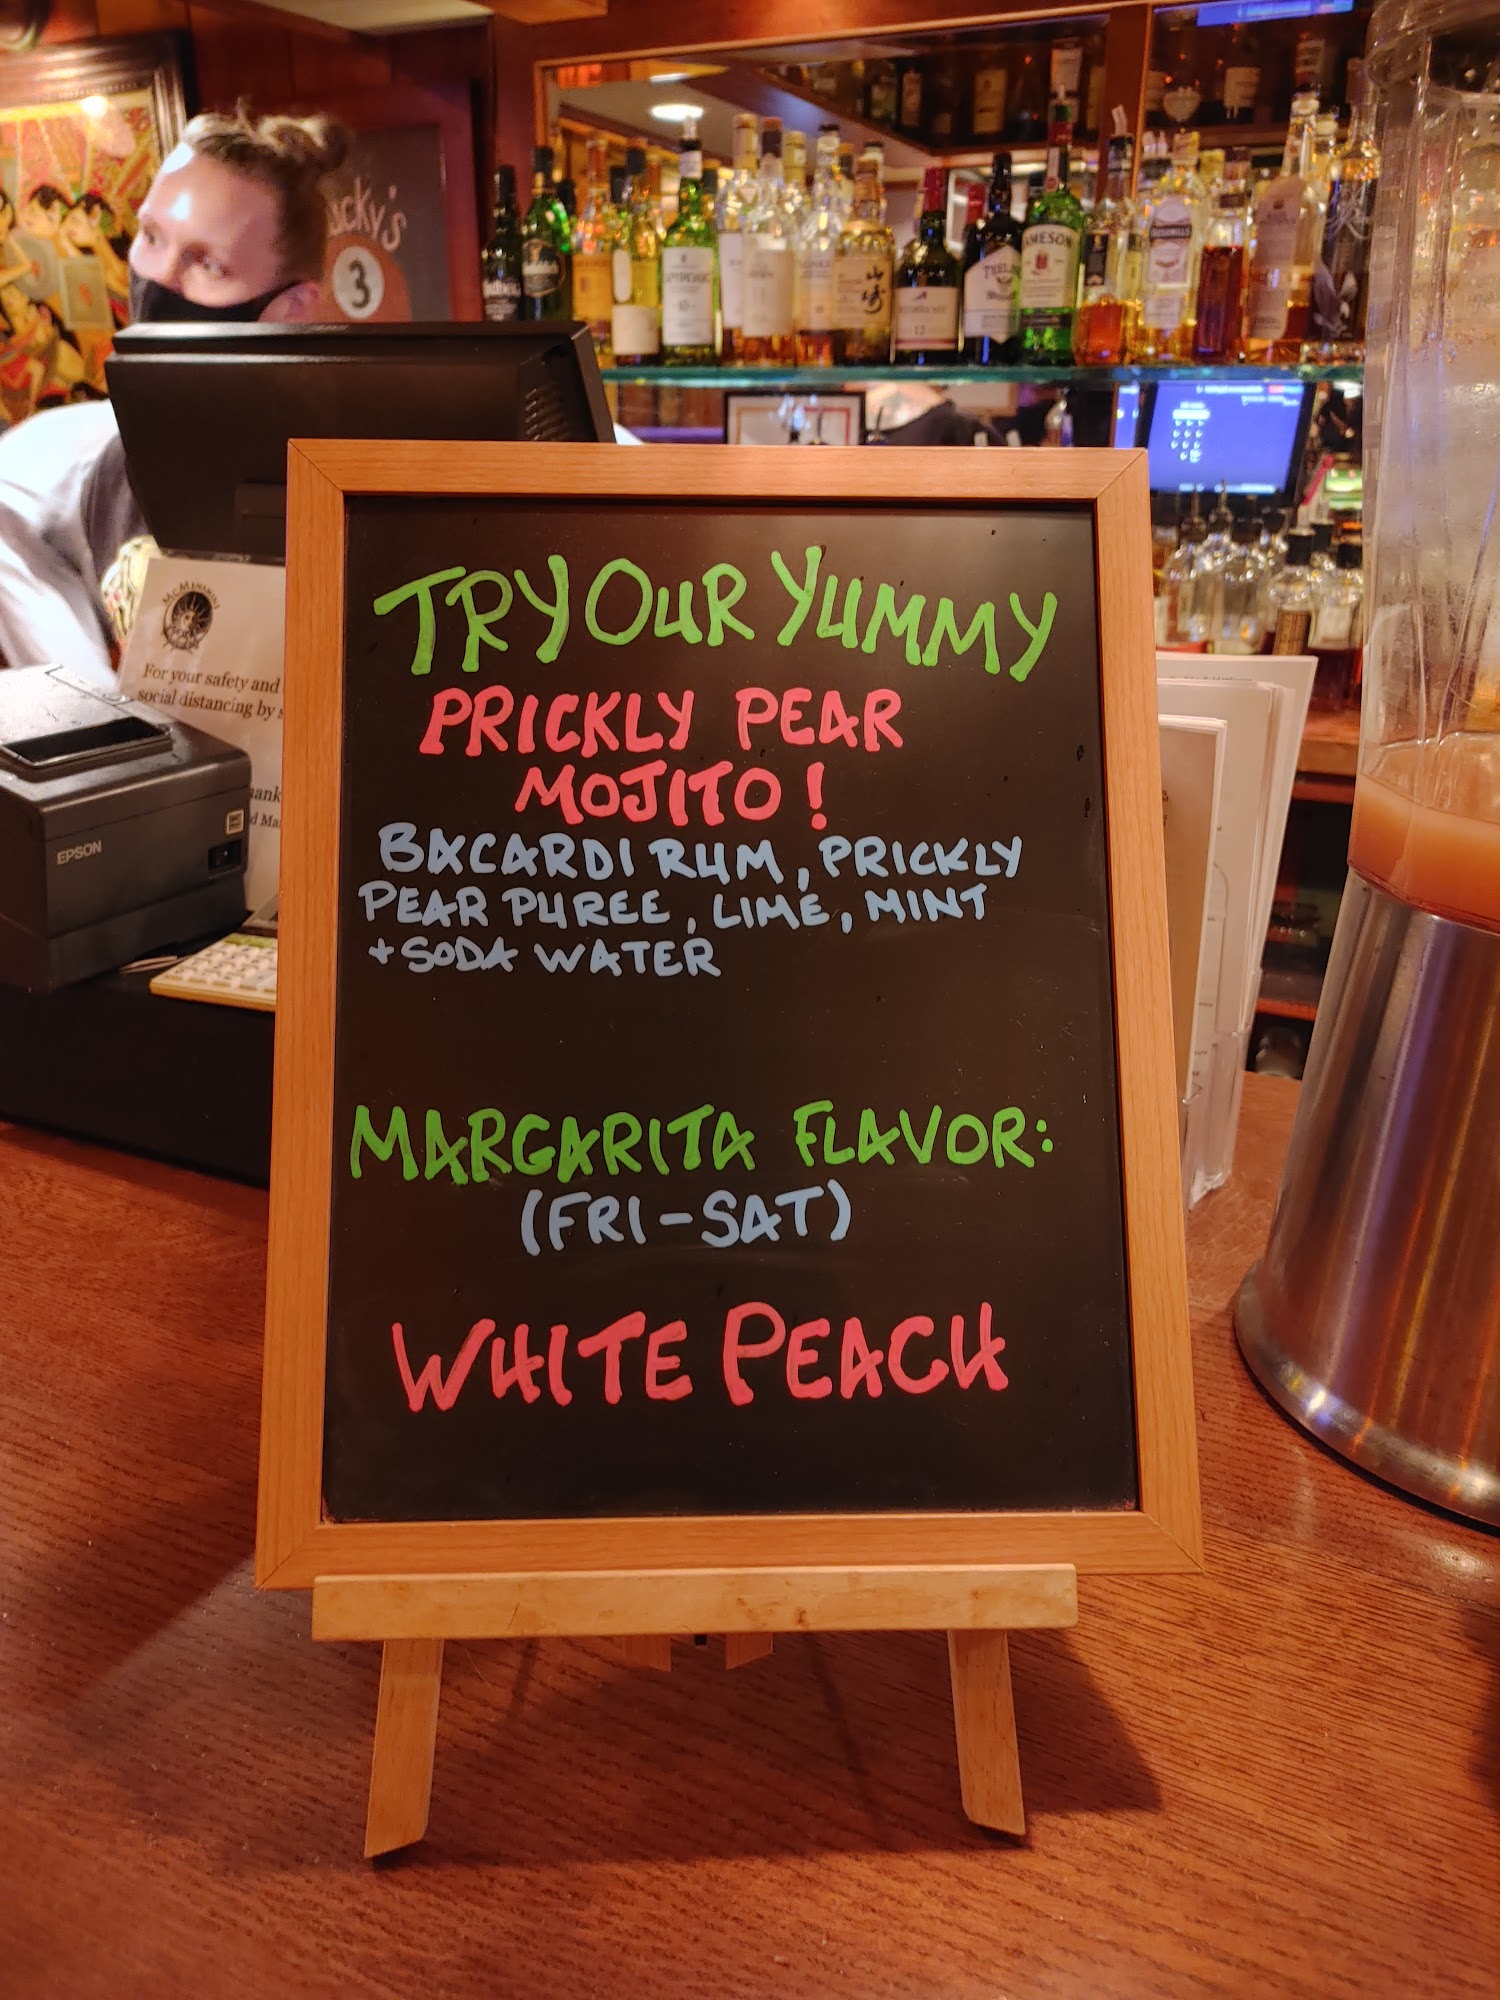 TRY OUR YUMMY
PRICKLY PEAR
MOJITO!
BACARDI RUM, PRICKLY
PEAR PUREE, LIME, MINT
+ SODA WATER
MARGARITA FLAVOR:
(FRI-SAT)
WHITE PEACH
ucky's
3
McMENAMINS
For your safety and
social distancing by s
EPSON
JAMESON
BUSHMILLS